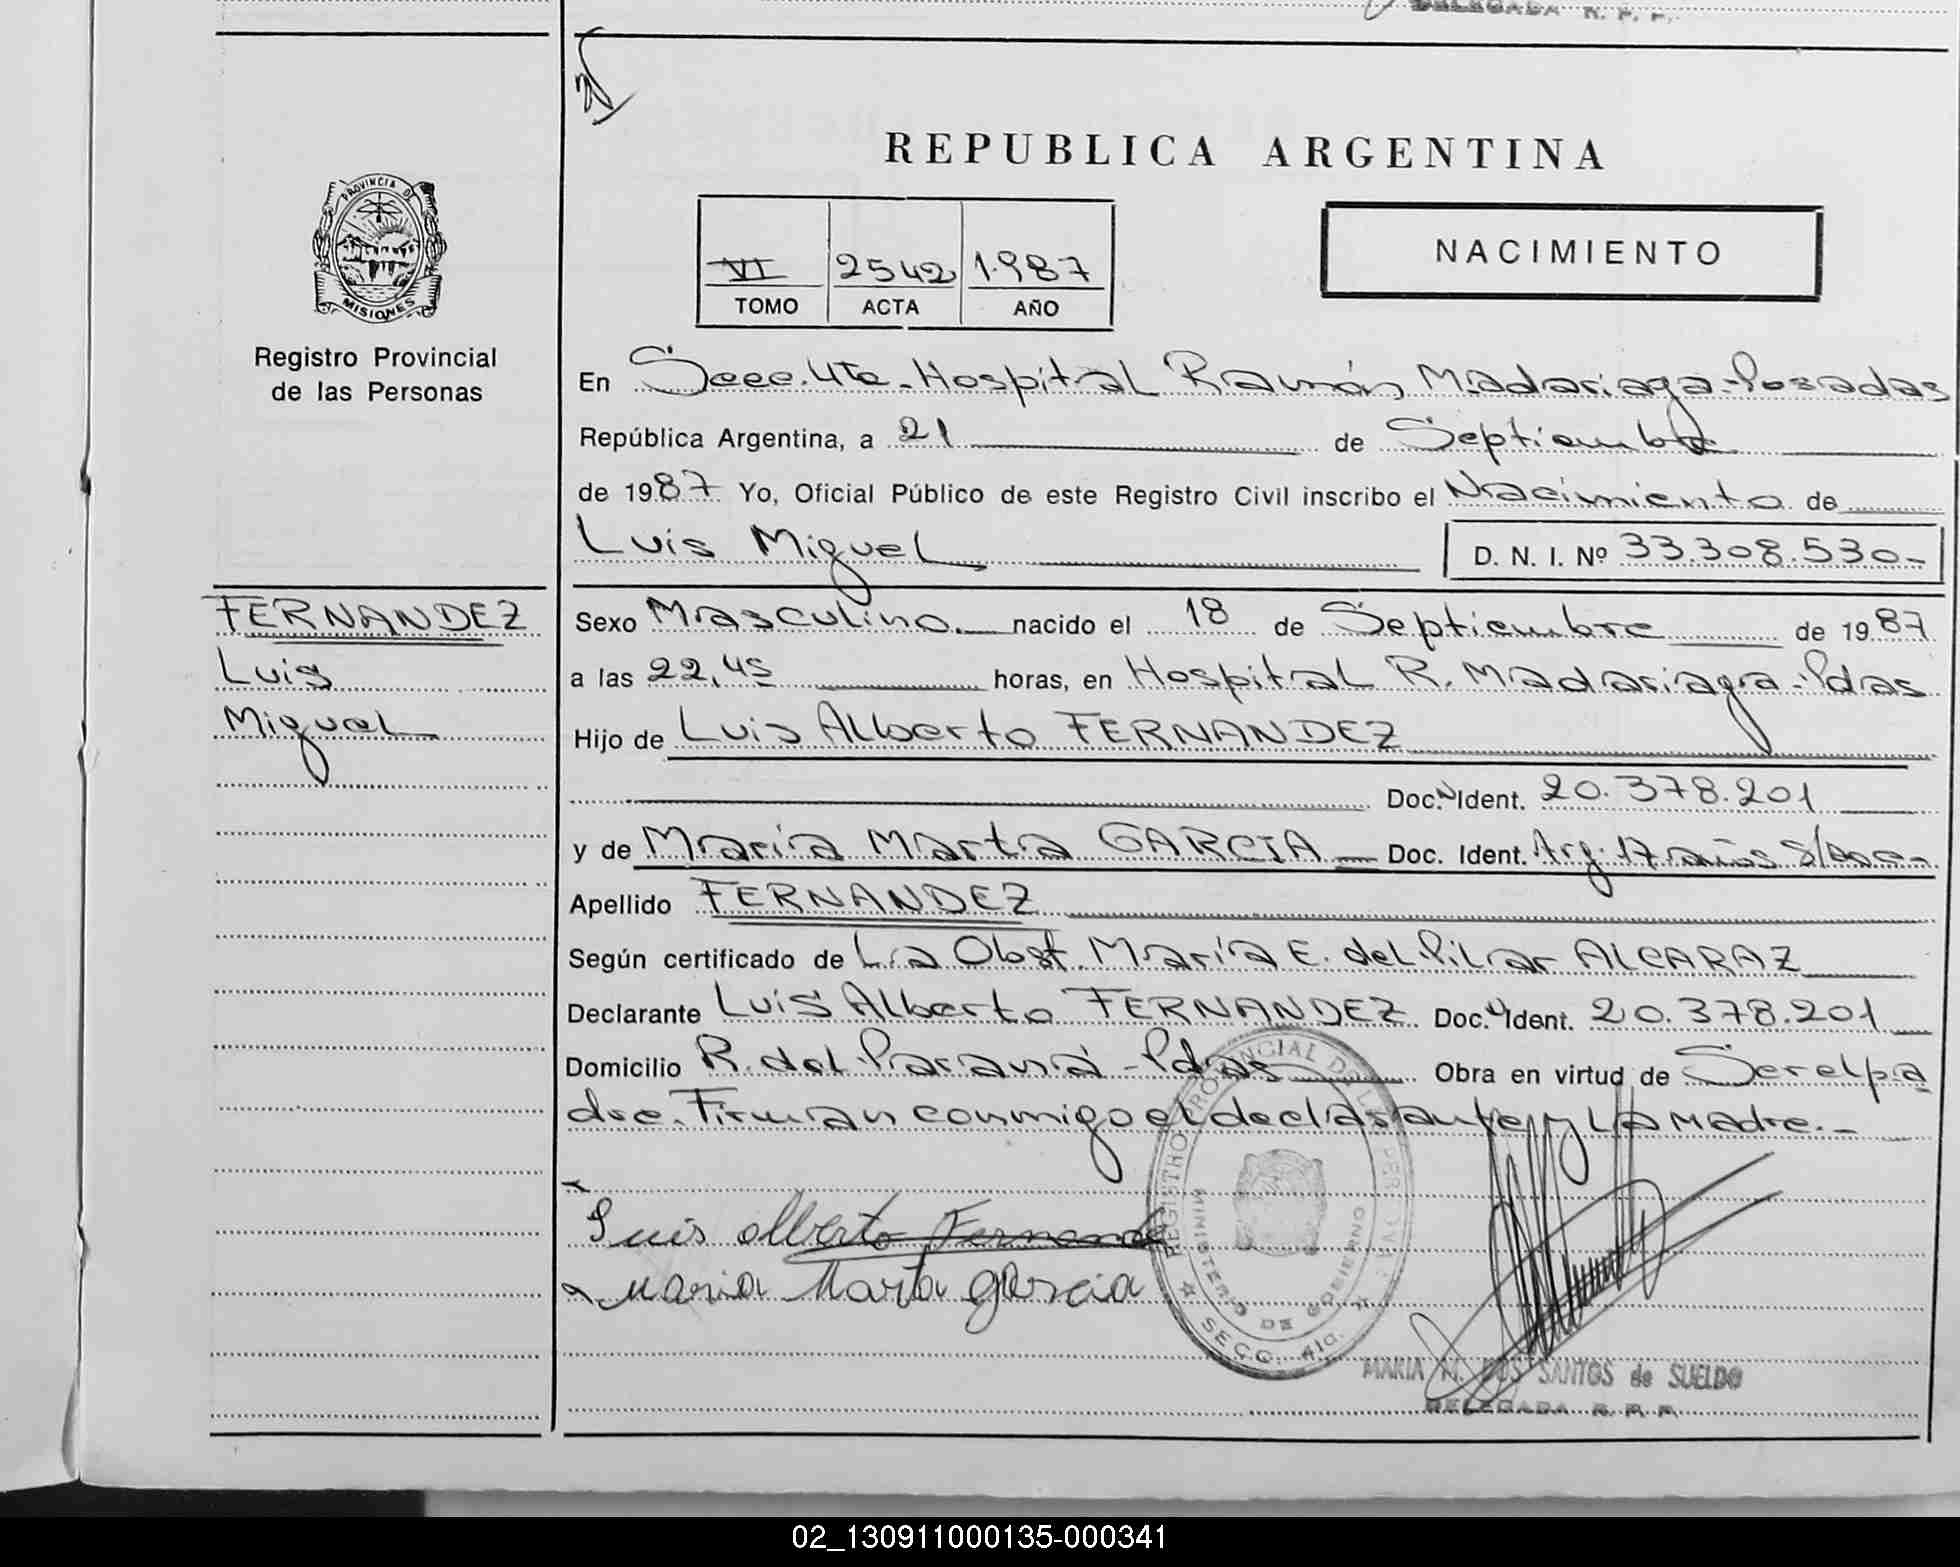 DELEGADA R. P. P.
REPUBLICA ARGENTINA
PROVINCIA DE
MISIONES
Registro Provincial
de las Personas
VI 2542 1.987
TOMO ACTA AÑO
NACIMIENTO
En Secc. 4ta. Hospital Ramón Madariaga - Posadas
República Argentina, a 21 de Septiembre
de 1987 Yo, Oficial Público de este Registro Civil inscribo el Nacimiento de
Luis Miguel D. N. I. Nº 33.308.530-
FERNANDEZ
Luis
Miguel
Sexo Masculino nacido el 18 de Septiembre de 1987
a las 22,45 horas, en Hospital R. Madariaga - Pdas
Hijo de Luis Alberto FERNANDEZ
Doc. N Ident. 20.378.201
y de María Marta GARCIA Doc. Ident. Arg. 17 años S/Doc-
Apellido FERNANDEZ
Según certificado de La Obst. María E. del Pilar ALCARAZ
Declarante Luis Alberto FERNANDEZ Doc. N Ident. 20.378.201
Domicilio R. del Paraná - Pdas Obra en virtud de Ser el pa
dre. Firman conmigo el declarante y La Madre.-
Luis Alberto Fernandez
Maria Marta Garcia
REGISTRO PROVINCIAL DE LAS PERSONAS
MINISTERIO DE GOBIERNO
SECC. 4ta.
MARIA N. DOS SANTOS de SUELDO
DELEGADA R. P. P.
02_130911000135-000341